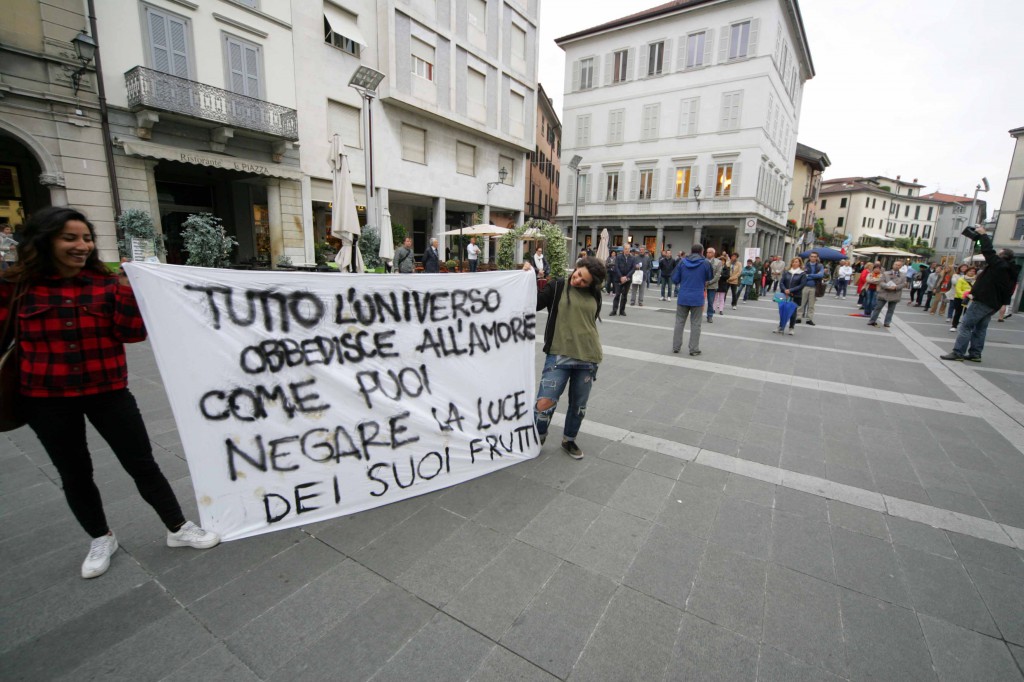 Ristorante LA PIAZZA
TUTTO L'UNIVERSO
OBBEDISCE ALL'AMORE
COME PUOI
NEGARE LA LUCE
DEI SUOI FRUTTI